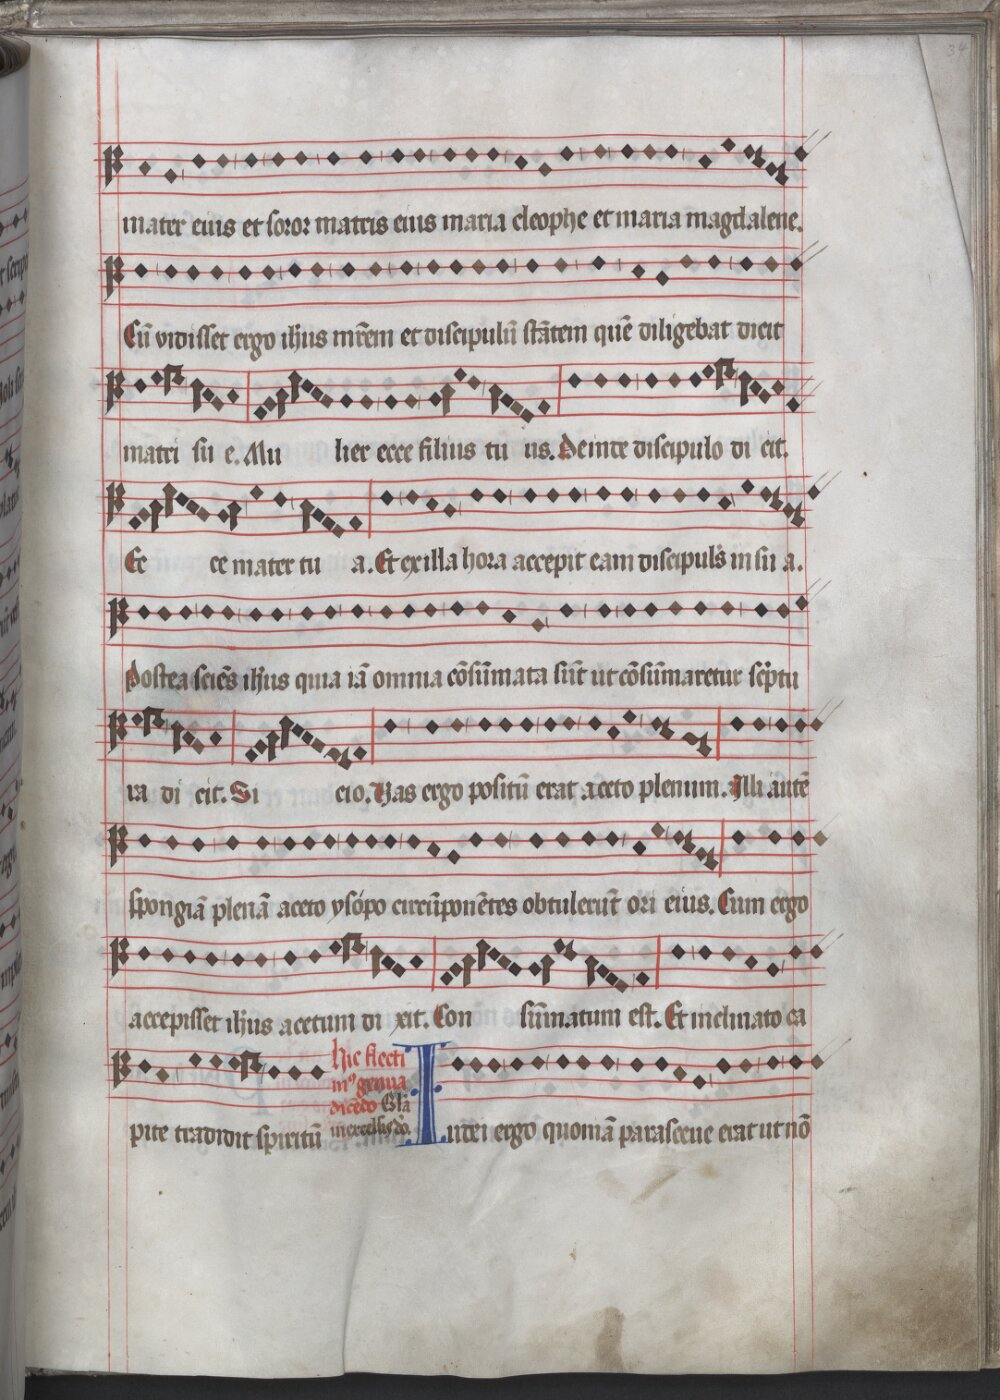 34
mater eius et soror matris eius maria cleophe et maria magdalene.
Cū vidisset ergo ih̄us mr̄em et discipulū stātem quē diligebat dicit
matri su e. Mu lier ecce filius tu us. Deinde discipulo di cit.
Ec ce mater tu a. Et ex illa hora accepit eam discipul's in su a.
Postea sciēs ih̄us quia iā omnia cōsūmata sūt ut cōsūmaretur sc̄ptu
ra di cit. Si cio. Vas ergo positū erat aceto plenum. Illi autē
spongiā plenā aceto ysopo circūponētes obtulerūt ori eius. Cum ergo
accepisset ih̄us acetum di xit. Con sūmatum est. Et inclinato ca
pite tradidit spiritū
hic flecti
mꝰ genua
dicēdo Glā
in excelsis do.
Iudei ergo quoniā parasceue erat ut nō